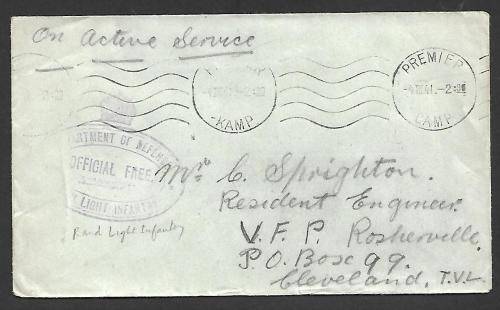 On Active Service
PREMIER
-4 III 41.-2:
CAMP
KAMP
OFFICIAL FREE
LIGHT INFANTRY
Rand Light Infantry
C. Sprighton.
Resident Engineer
V.F.P. Rosherville,
P.O. Box 99.
Cleveland, T.V.L.